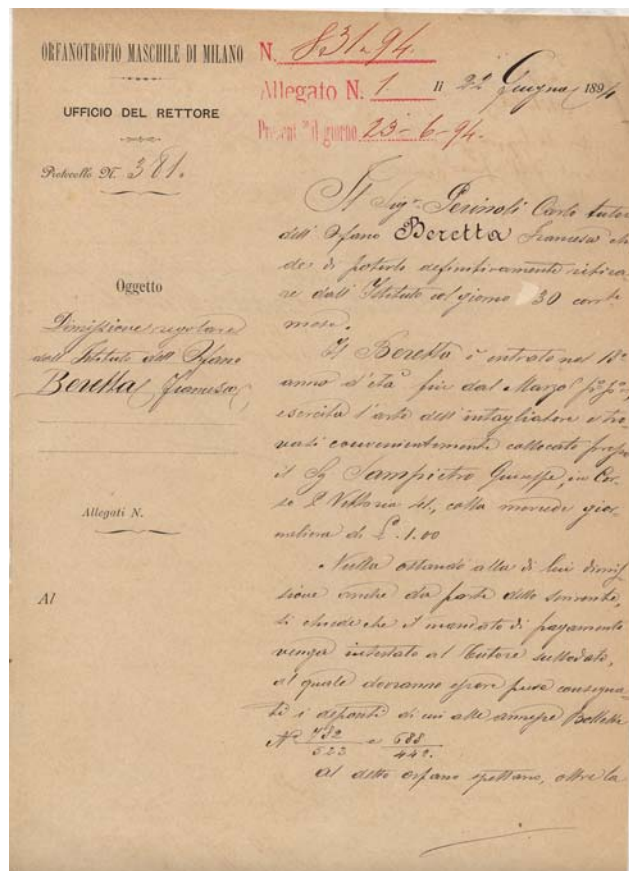 ORFANOTROFIO MASCHILE DI MILANO
UFFICIO DEL RETTORE
Protocollo N. 381.
N. 831-94.
Allegato N. 1
li 22 Giugno 1894
Present° il giorno 23-6-94.
Oggetto
Dimissione regolare
dall'Istituto dell'Orfano
Beretta Francesco
Allegati N.
Al
Il Sigr. Carlo tutore
dell'Orfano Beretta Francesco chie-
de di poterlo definitivamente ritira-
re dall'Istituto col giorno 30 corrte
mese.
Il Beretta è entrato nel 18°
anno d'età fin dal Marzo pº pº,
esercita l'arte dell'intagliatore e tro-
vasi convenientemente collocato presso
il Sg Sampietro Giuseppe, in Cor-
so P Vittoria colla mercede gior-
naliera di £. 1.00
Nulla ostando alla di lui dimis-
sione anche da parte dello scrivente,
si chiede che il mandato di pagamento
venga intestato al Tutore sullodato,
al quale dovranno essere pure consegna-
ti i depositi di cui alle annesse Bollette
Nº 782/523 e 688/442.
Al detto orfano spettano, oltre la